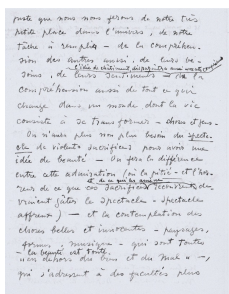 juste que nous nous ferons de notre très
petite place dans l'univers, de notre
tâche à remplir – de la compréhen-
sion des autres aussi, de leurs be-
soins, de leurs sentiments – de la
compréhension aussi de tout ce qui
change dans un monde dont la vie
consiste à se transformer – choses et gens.
On n'aura plus non plus besoin du specta-
cle de violents sacrifices pour avoir une
idée de beauté – On fera la différence
entre cette admiration (où la pitié – et l'hor-
reur de ce que ces sacrifices
vraient gâter le spectacle – spectacle
affreux) – et la contemplation des
choses belles et innocentes – paysages,
formes, musique – qui sont toutes
– la beauté est toute
"en dehors du bien et du mal" –,
qui s'adressent à des facultés plus